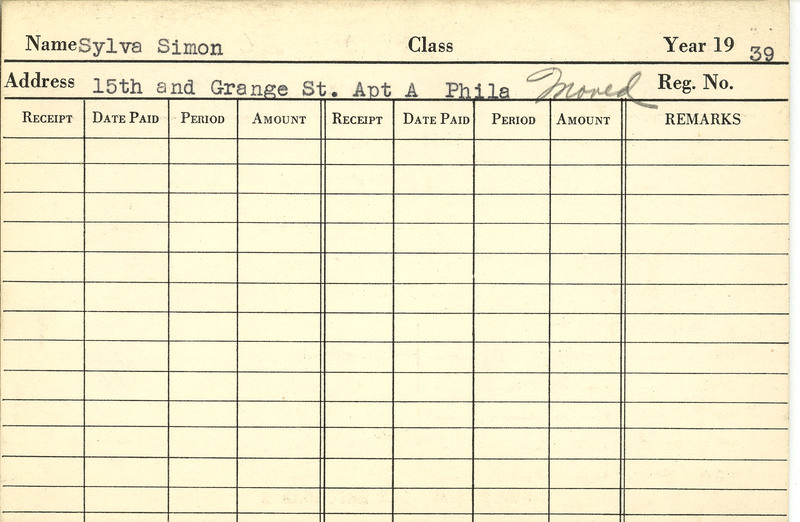 Name Sylva Simon Class Year 19 39
Address 15th and Grange St. Apt A Phila Moved Reg. No.
RECEIPT DATE PAID PERIOD AMOUNT RECEIPT DATE PAID PERIOD AMOUNT REMARKS